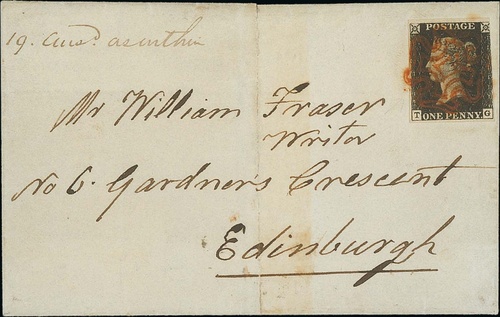 19.
POSTAGE
T ONE PENNY G
Mr William Fraser
Writer
No 6. Gardner's Crescent
Edinburgh